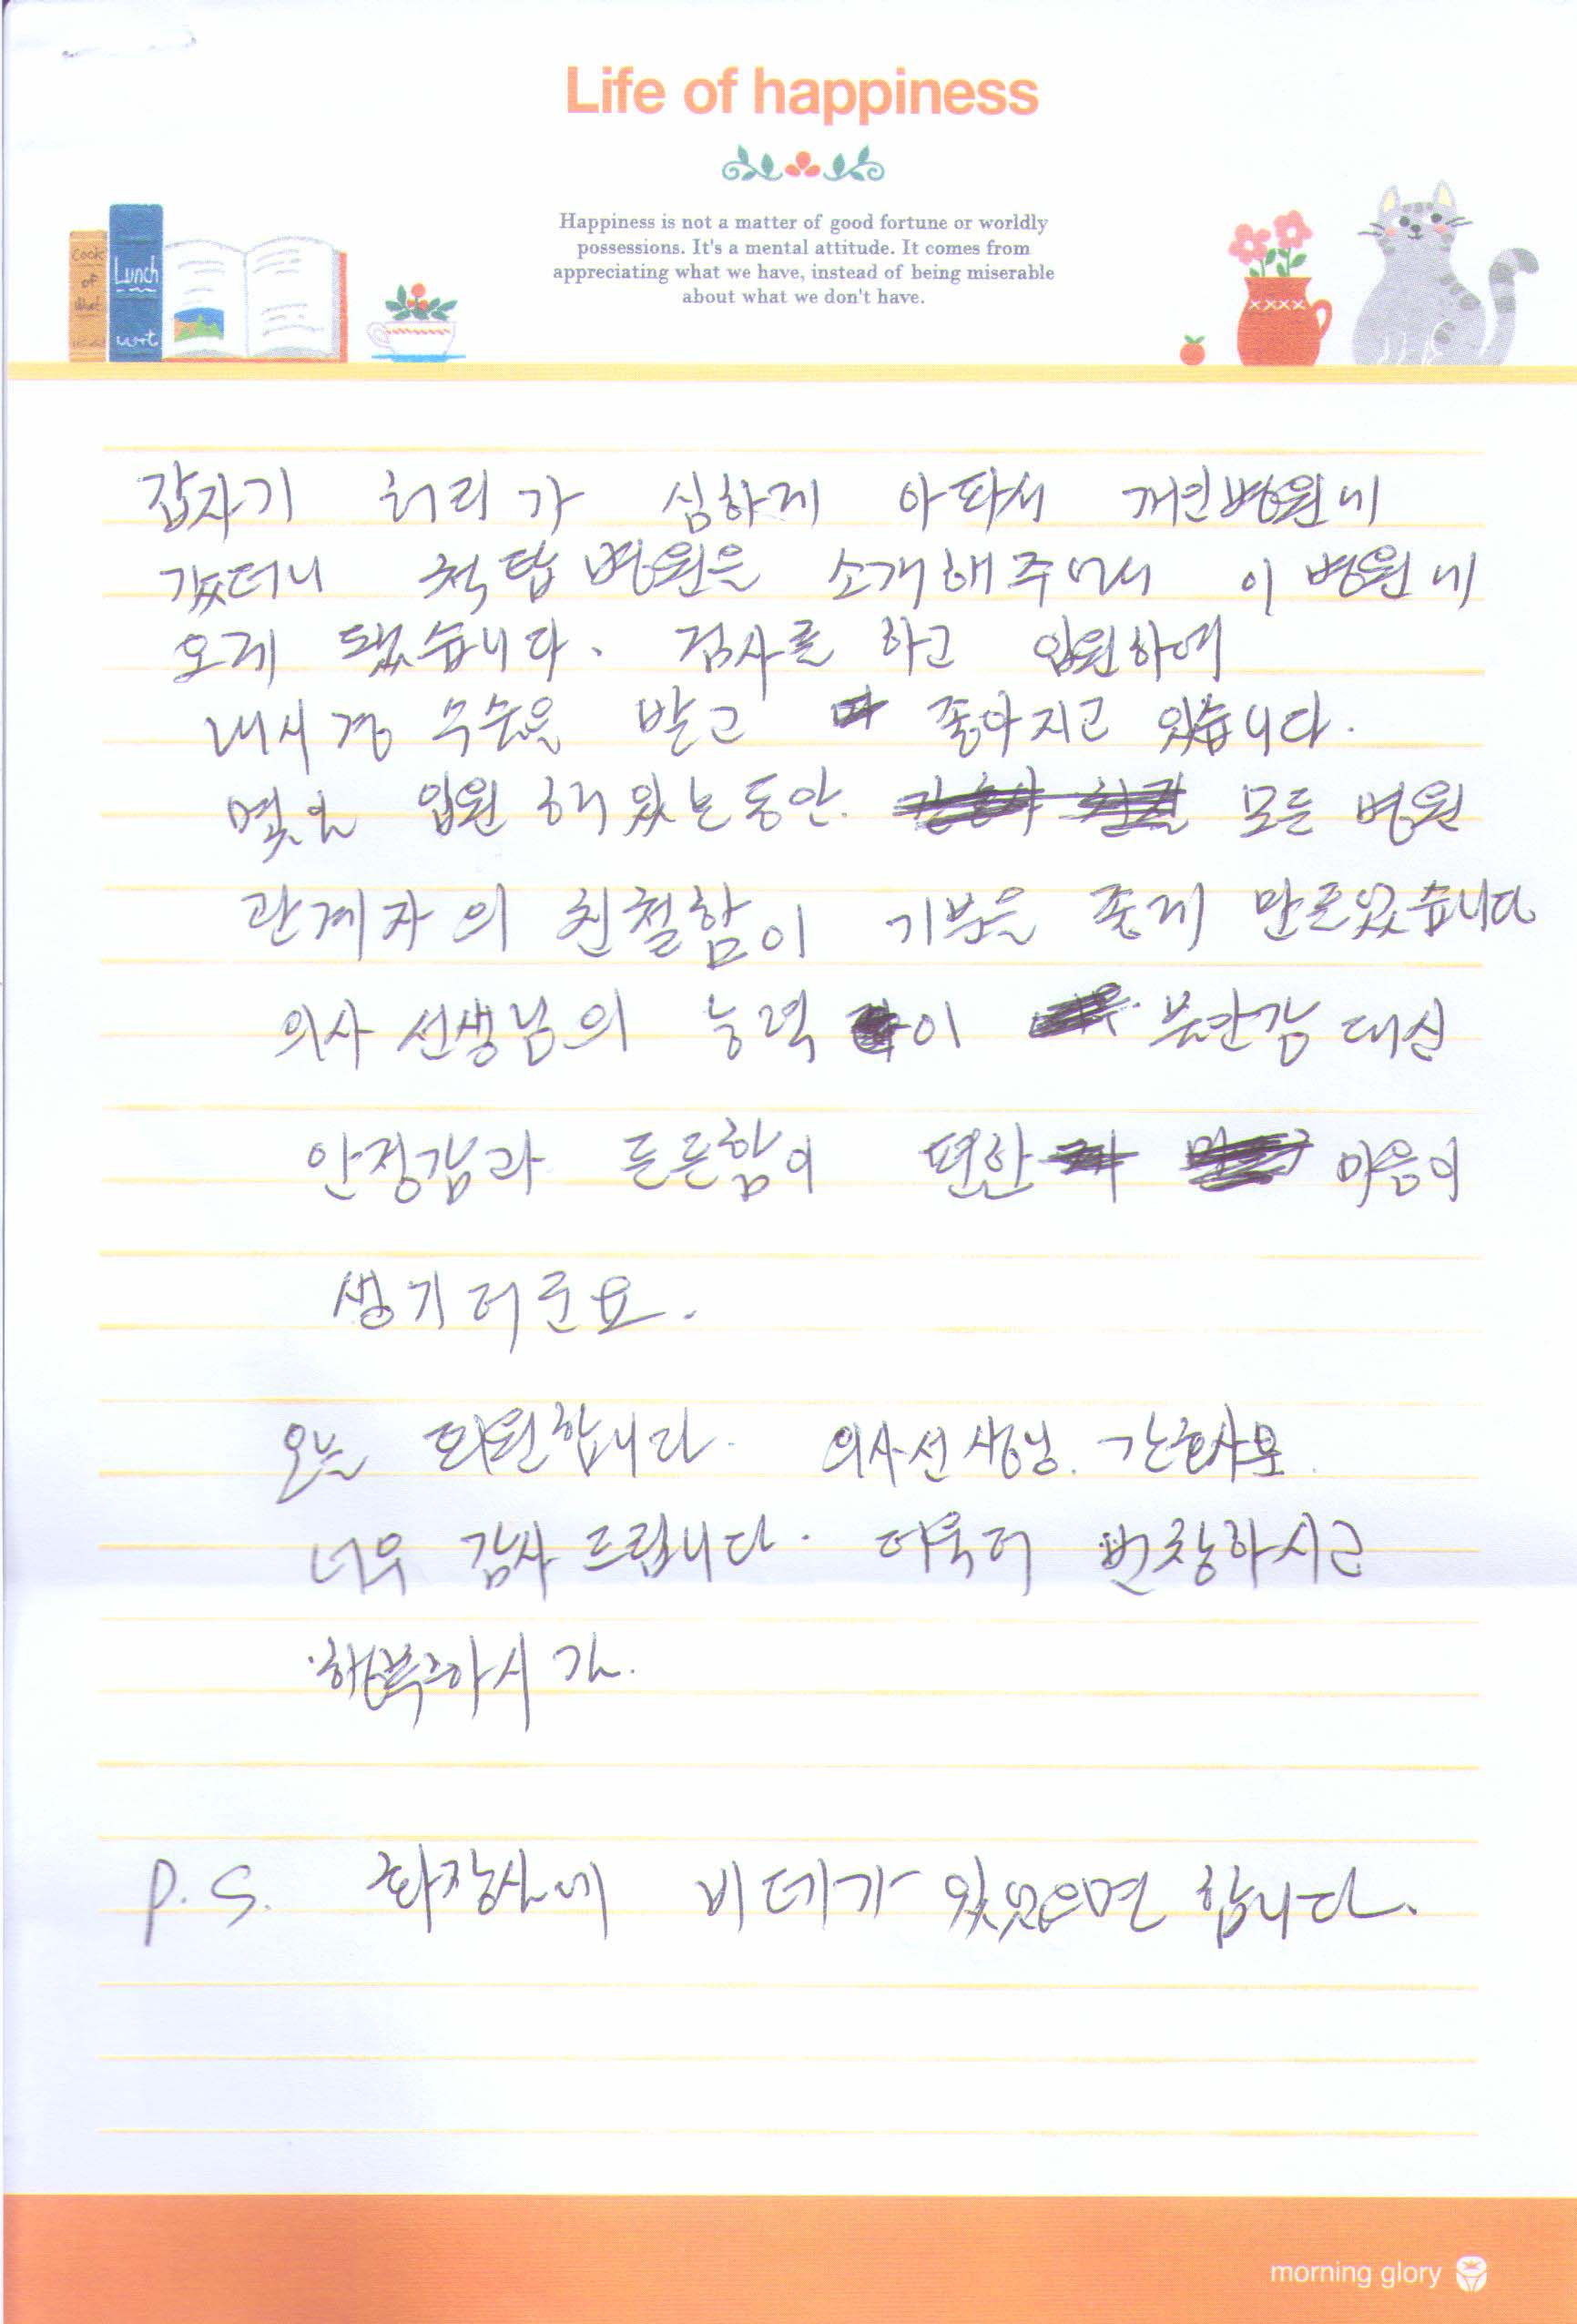 Life of happiness
Happiness is not a matter of good fortune or worldly
possessions. It's a mental attitude. It comes from
appreciating what we have, instead of being miserable
about what we don't have.
Cook
of
Lunch
갑자기 허리가 심하게 아파서 개인병원에
갔더니 척탑 병원을 소개해주면서 이 병원에
오게 됐습니다. 검사를 하고 입원하여
내시경 수술을 받고 좋아지고 있습니다.
몇일 입원 해 있는동안. 모든 병원
관계자의 친철함이 기분을 좋게 만들었습니다
의사 선생님의 능력 이 불안감 대신
안정감과 든든함이 편안 마음이
생기더군요.
오늘 퇴원합니다. 의사선생님. 간호사분.
너우 감사드립니다. 더욱더 번창하시고
행복하시길.
P.S. 화장실에 비데가 있었으면 합니다.
morning glory